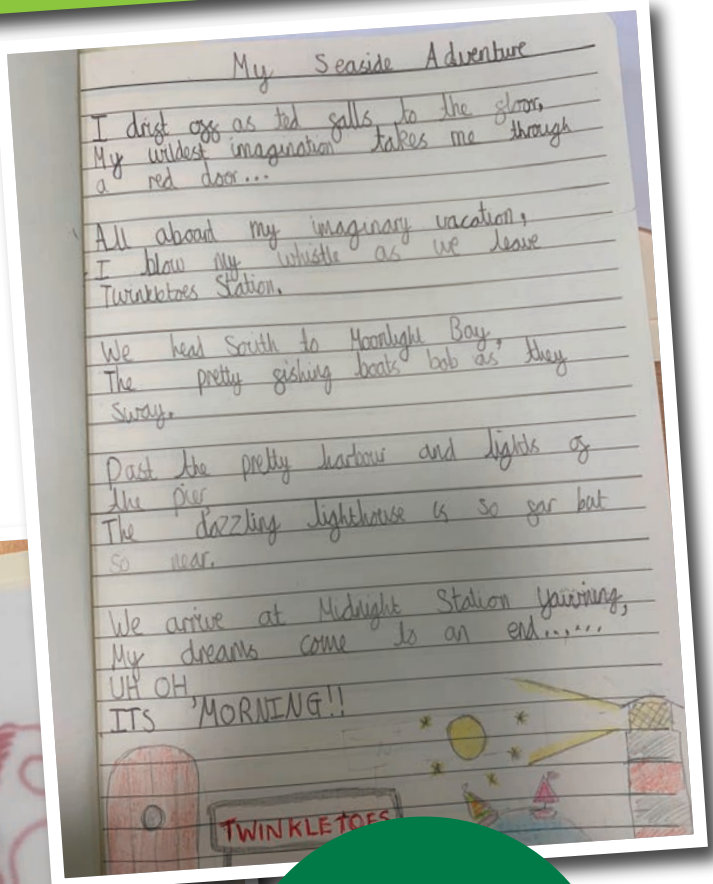 My Seaside Adventure
I drift off as ted falls to the floor,
My wildest imagination takes me through
a red door...
All aboard my imaginary vacation,
I blow my whistle as we leave
Twinkletoes Station.
We head South to Moonlight Bay,
The pretty fishing boats bob as they
sway.
Past the pretty harbour and lights of
the pier
The dazzling lighthouse is so far but
so near.
We arrive at Midnight Station yawning,
My dreams come to an end......
UH OH
ITS MORNING!!
TWINKLETOES